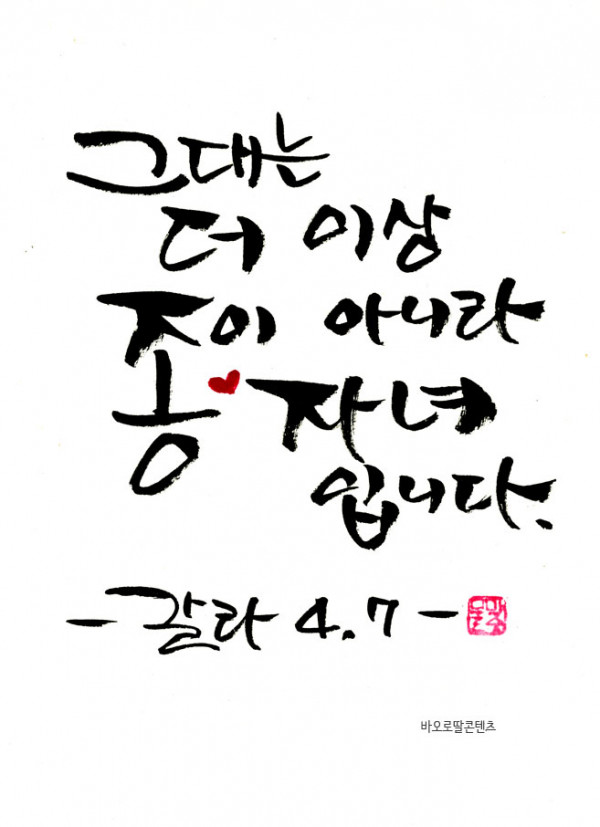 그대는
더 이상
종이 아니라
자녀
입니다.
- 갈라 4.7 -
바오로딸콘텐츠